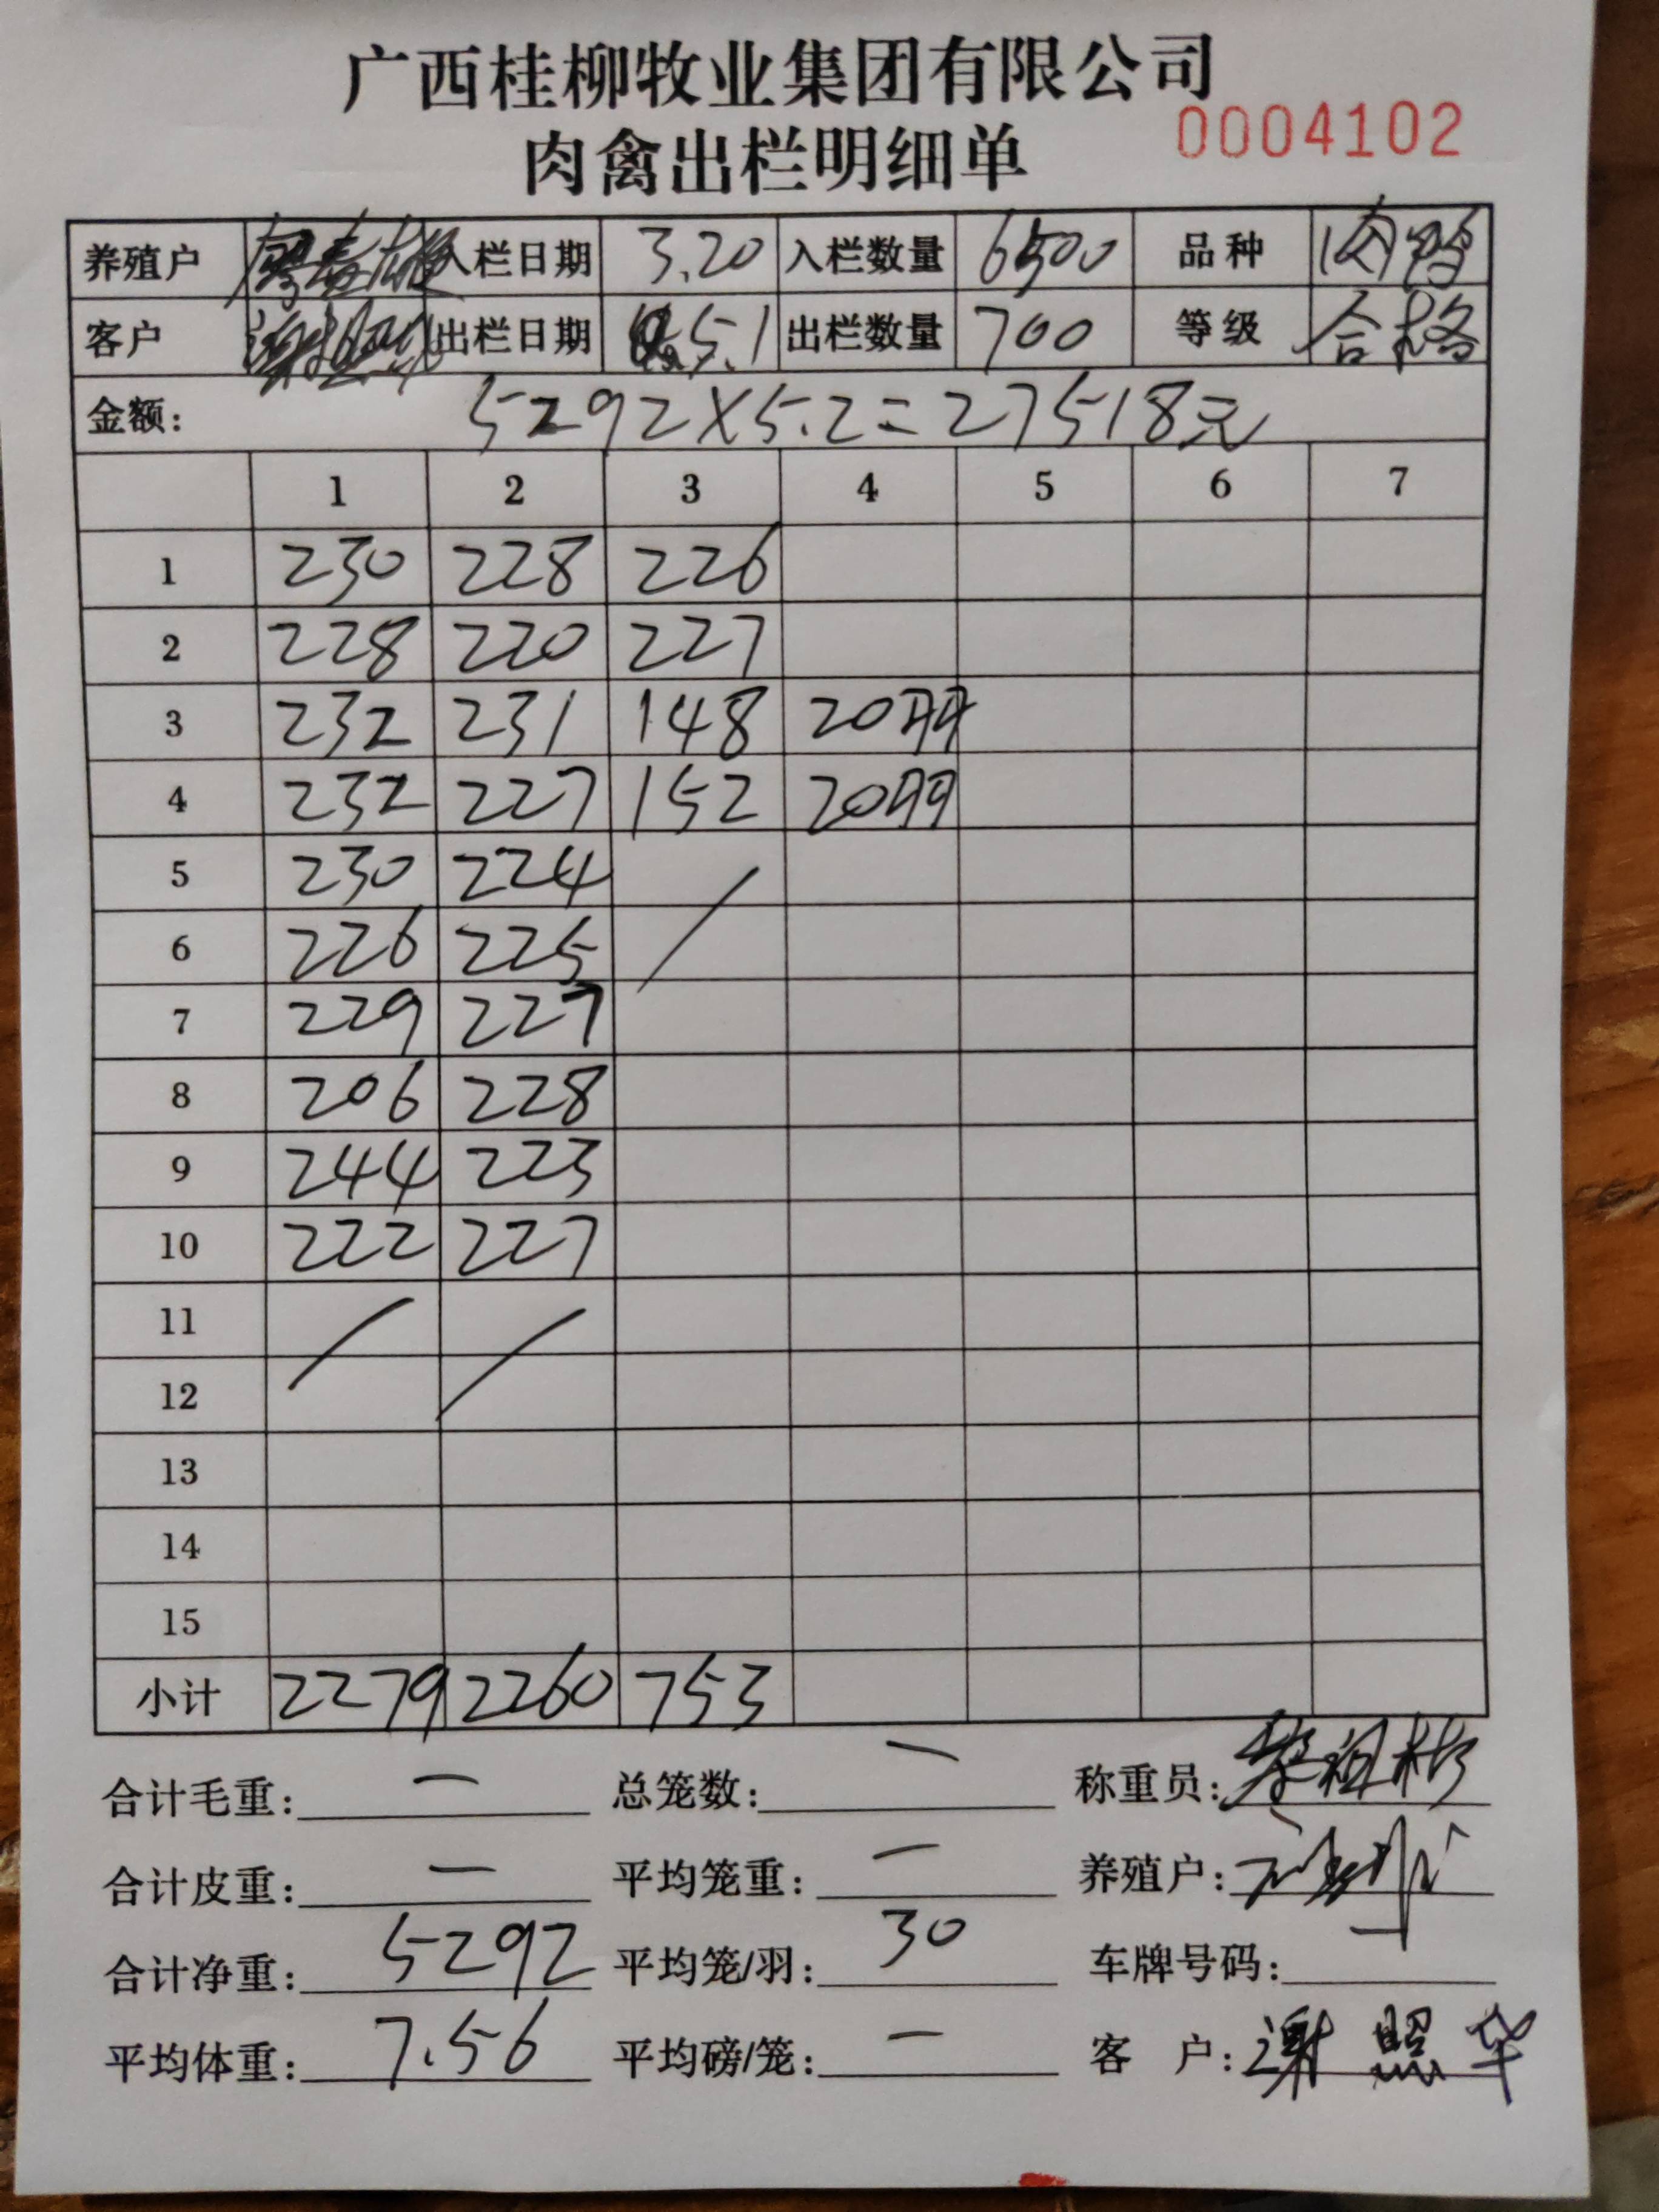 广西桂柳牧业集团有限公司
肉禽出栏明细单 0004102
养殖户 入栏日期 3.20 入栏数量 6500 品种 肉鸭
客户 出栏日期 5.1 出栏数量 700 等级 合格
金额: 5292×5.2=27518元
1 2 3 4 5 6 7
1 230 228 226
2 228 220 227
3 232 231 148 20
4 232 227 152 20
5 230 224 /
6 226 225
7 229 227
8 206 228
9 244 223
10 222 227
11 / /
12
13
14
15
小计 2279 2260 753
合计毛重: — 总笼数: — 称重员:
合计皮重: — 平均笼重: — 养殖户:
合计净重: 5292 平均笼/羽: 30 车牌号码:
平均体重: 7.56 平均磅/笼: — 客 户: 谢照华